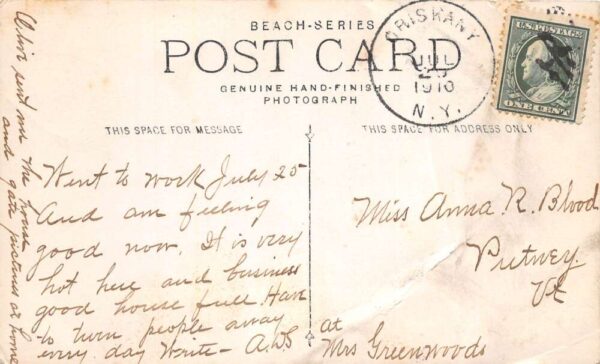 BEACH-SERIES
POST CARD
GENUINE HAND-FINISHED
PHOTOGRAPH
ORISKANY
JUL
1910
N.Y.
U.S. POSTAGE
ONE CENT
THIS SPACE FOR MESSAGE
THIS SPACE FOR ADDRESS ONLY
Went to work July 25
And am feeling
good now. It is very
hot here and business
good house full. Have
to turn people away
every day Write –
sent me the house
and gate pictures at home
Miss Anna R. Blood
Putney.
Vt
at
Mrs Greenwoods